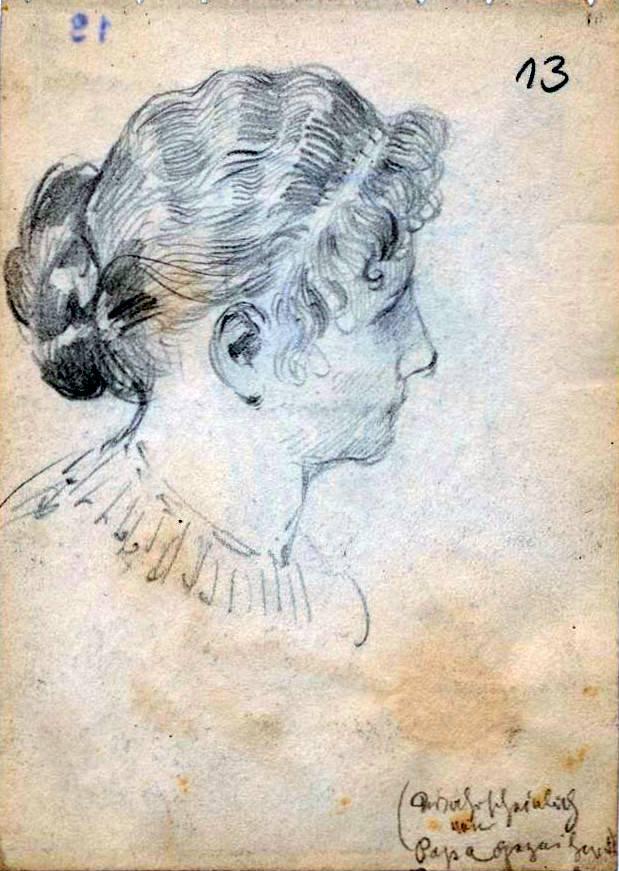 13
(Wahrscheinlich
von
Papa gezeichnet